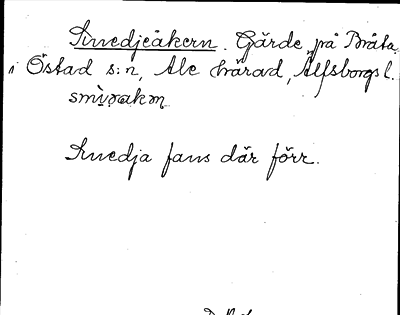 Smedjeåkern. Gärde på Bråta,
i Östad s:n, Ale härad, Älfsborgs l.
smìvɔakɐn
Smedja fans där förr.